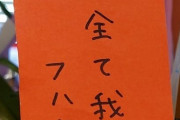 全て我
フハ